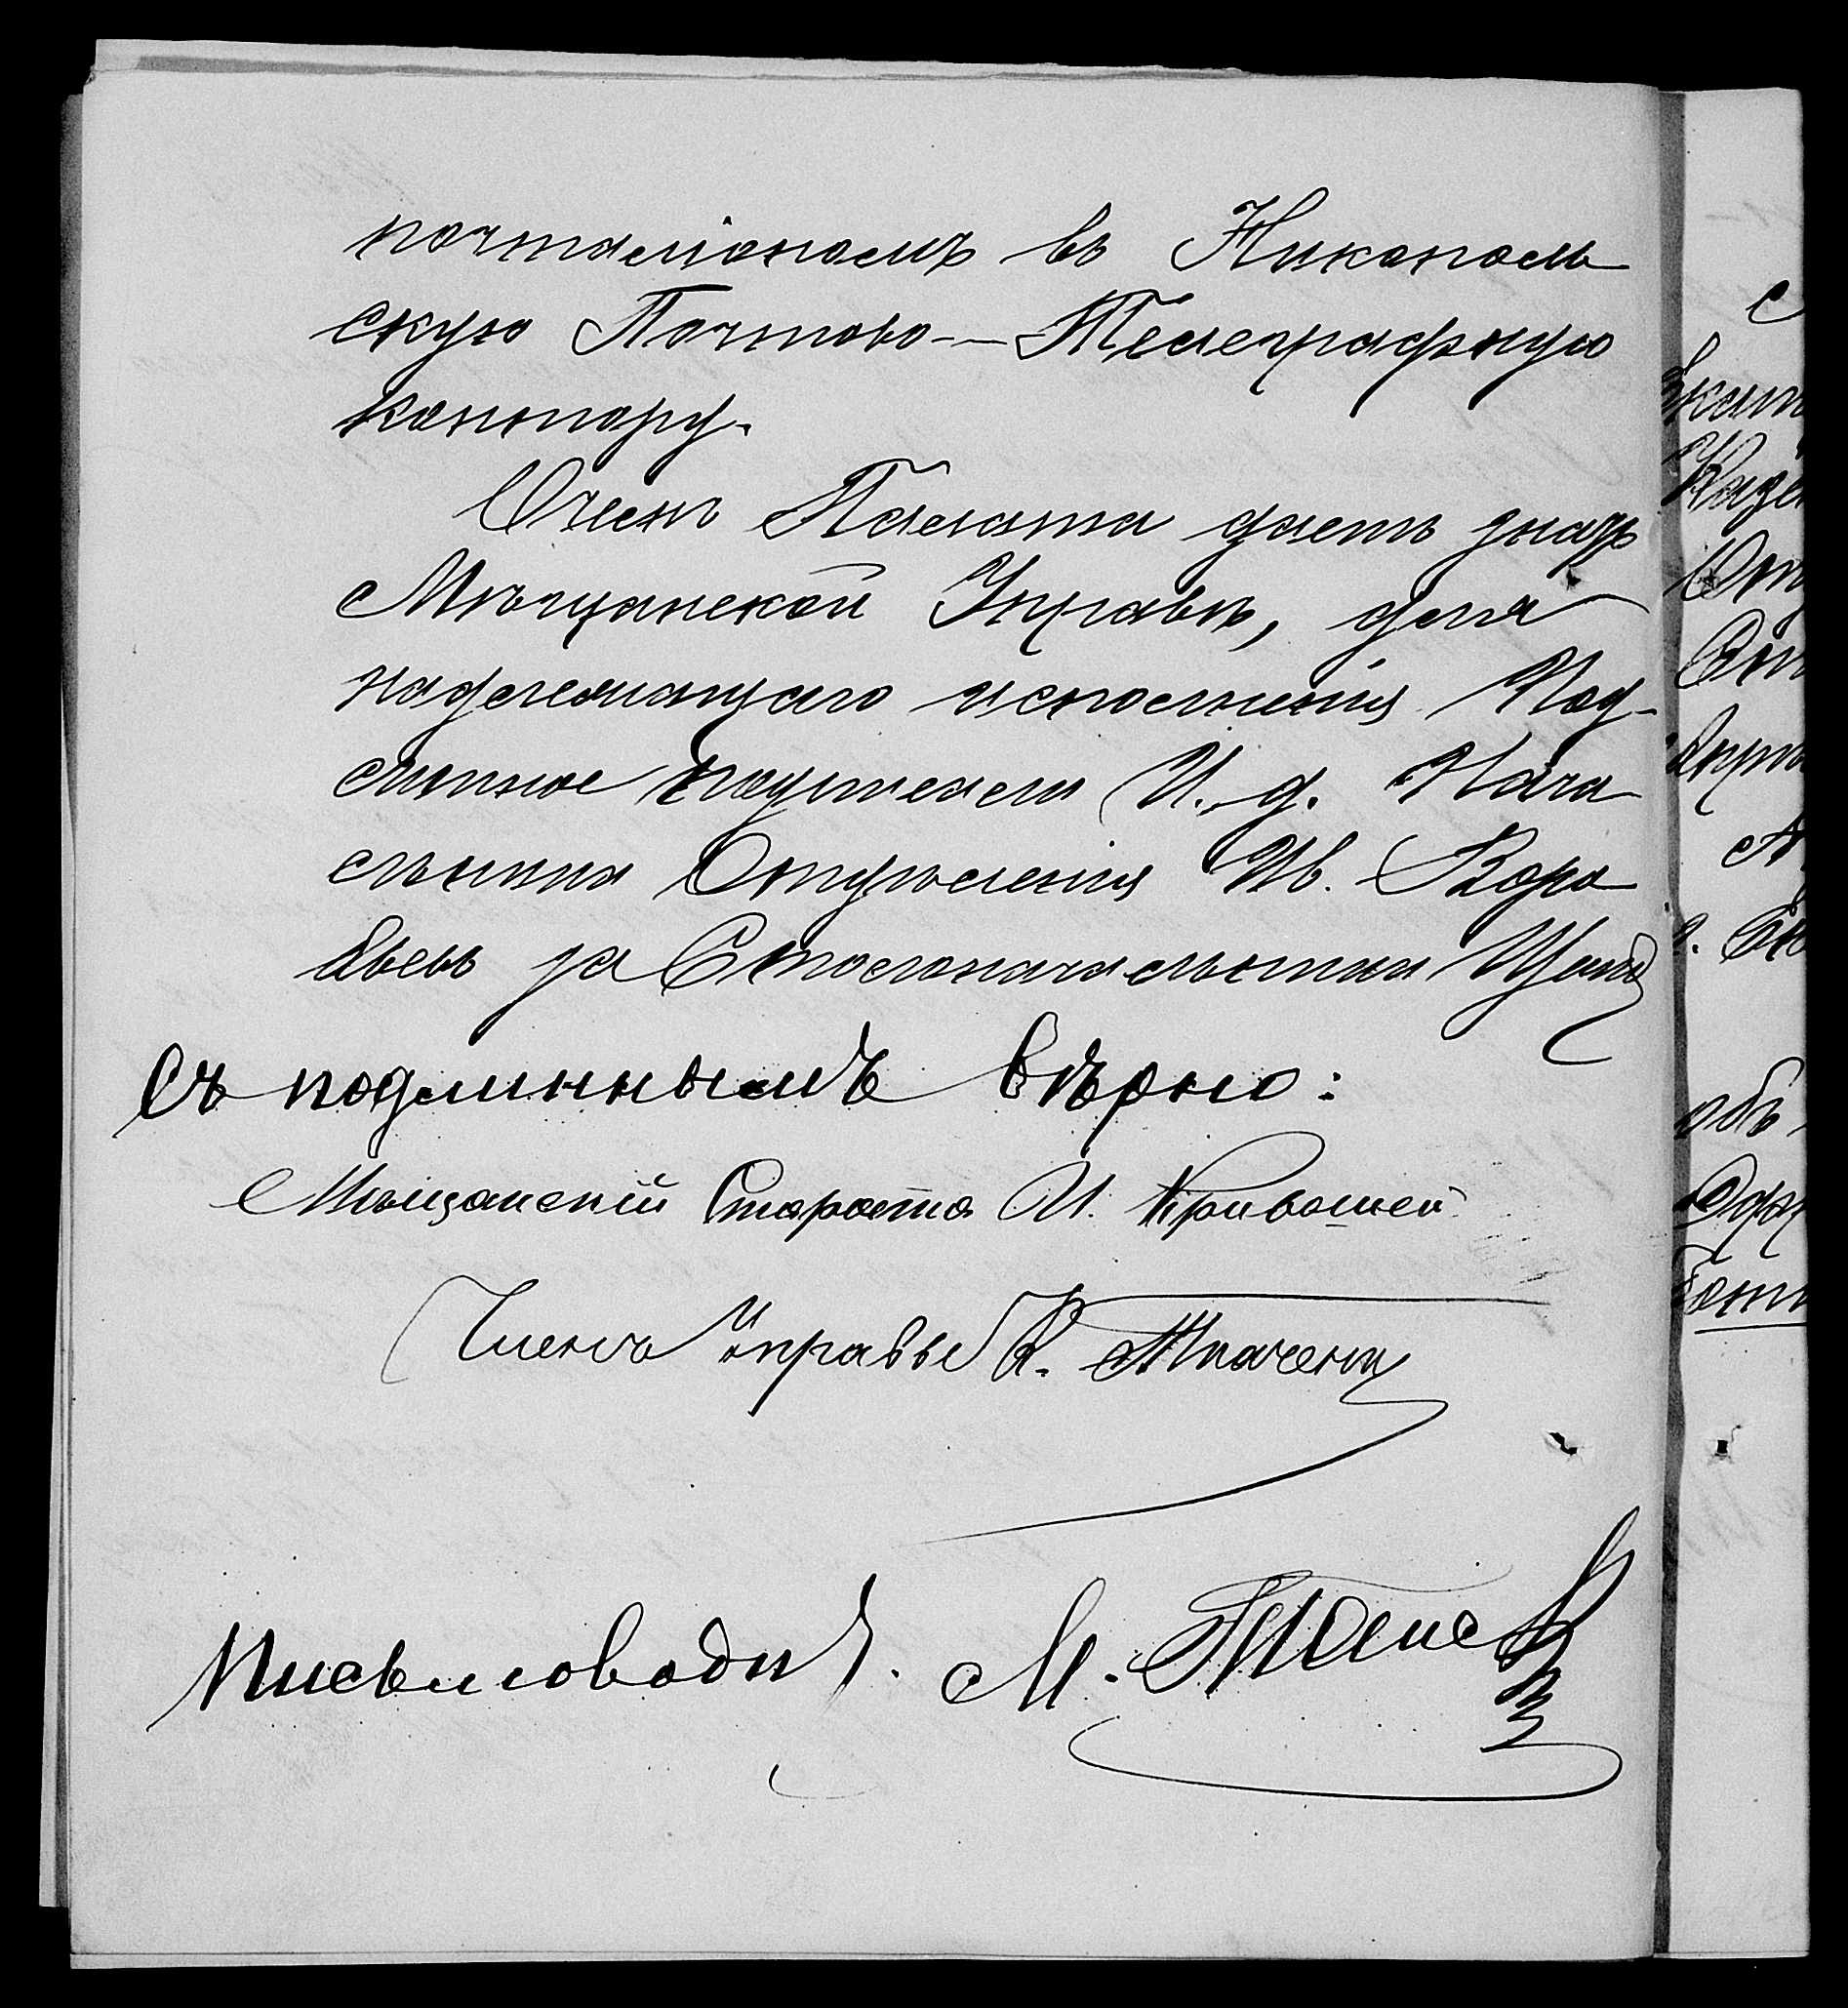 почталіономъ въ Никополь
скую Почтово-Телеграфную
контору.
О чемъ Палата даетъ знать
Мѣщанской Управѣ, для
надлежащаго исполненія. Под-
линное подписали И. д. Нача
льника Отдѣленія Ив. Воро
бьевъ за Столоначальника
Съ подлиннымъ вѣрно:
Мѣщанскій Староста И. Кривошей
Членъ Управы К. Ткаченко
Письмоводит. М.